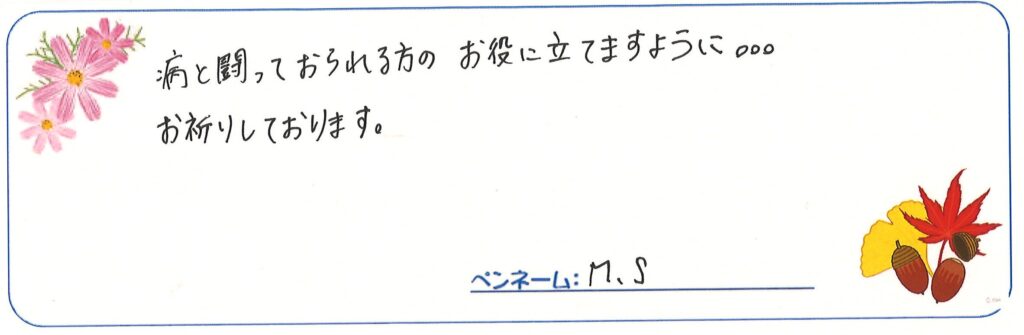 病と闘っておられる方の お役に立てますように。。。
お祈りしております。
ペンネーム: M、S